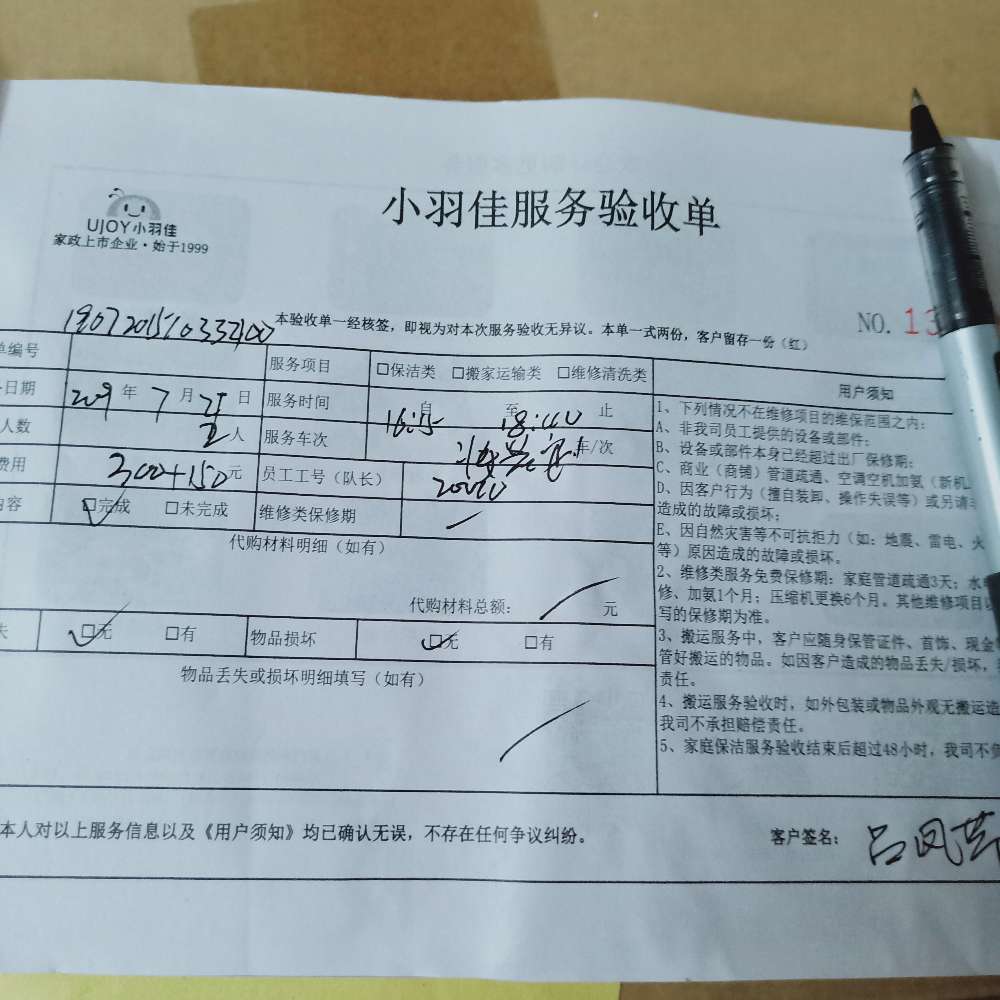 UJOY小羽佳
家政上市企业·始于1999
小羽佳服务验收单
本验收单一经核签，即视为对本次服务验收无异议。本单一式两份，客户留存一份（红）
NO. 13
单编号
服务项目 □保洁类 □搬家运输类 □维修清洗类
日期 2019 年 7 月 21 日 服务时间 自 16:15 至 18:40 止
人数 人 服务车次 车/次
费用 300+150 元 员工工号（队长）
内容 □完成 □未完成 维修类保修期
代购材料明细（如有）
代购材料总额： 元
失 □无 □有 物品损坏 □无 □有
物品丢失或损坏明细填写（如有）
用户须知
1、下列情况不在维修项目的维保范围之内：
A、非我司员工提供的设备或部件；
B、设备或部件本身已经超过出厂保修期；
C、商业（商铺）管道疏通、空调空机加氨（新机
D、因客户行为（擅自装卸、操作失误等）或另请
造成的故障或损坏；
E、因自然灾害等不可抗拒力（如：地震、雷电、火
等）原因造成的故障或损坏。
2、维修类服务免费保修期：家庭管道疏通3天；水电
修、加氨1个月；压缩机更换6个月。其他维修项目以
写的保修期为准。
3、搬运服务中，客户应随身保管证件、首饰、现金
管好搬运的物品。如因客户造成的物品丢失/损坏，
责任。
4、搬运服务验收时，如外包装或物品外观无搬运造
我司不承担赔偿责任。
5、家庭保洁服务验收结束后超过48小时，我司不
本人对以上服务信息以及《用户须知》均已确认无误，不存在任何争议纠纷。
客户签名： 吕凤英